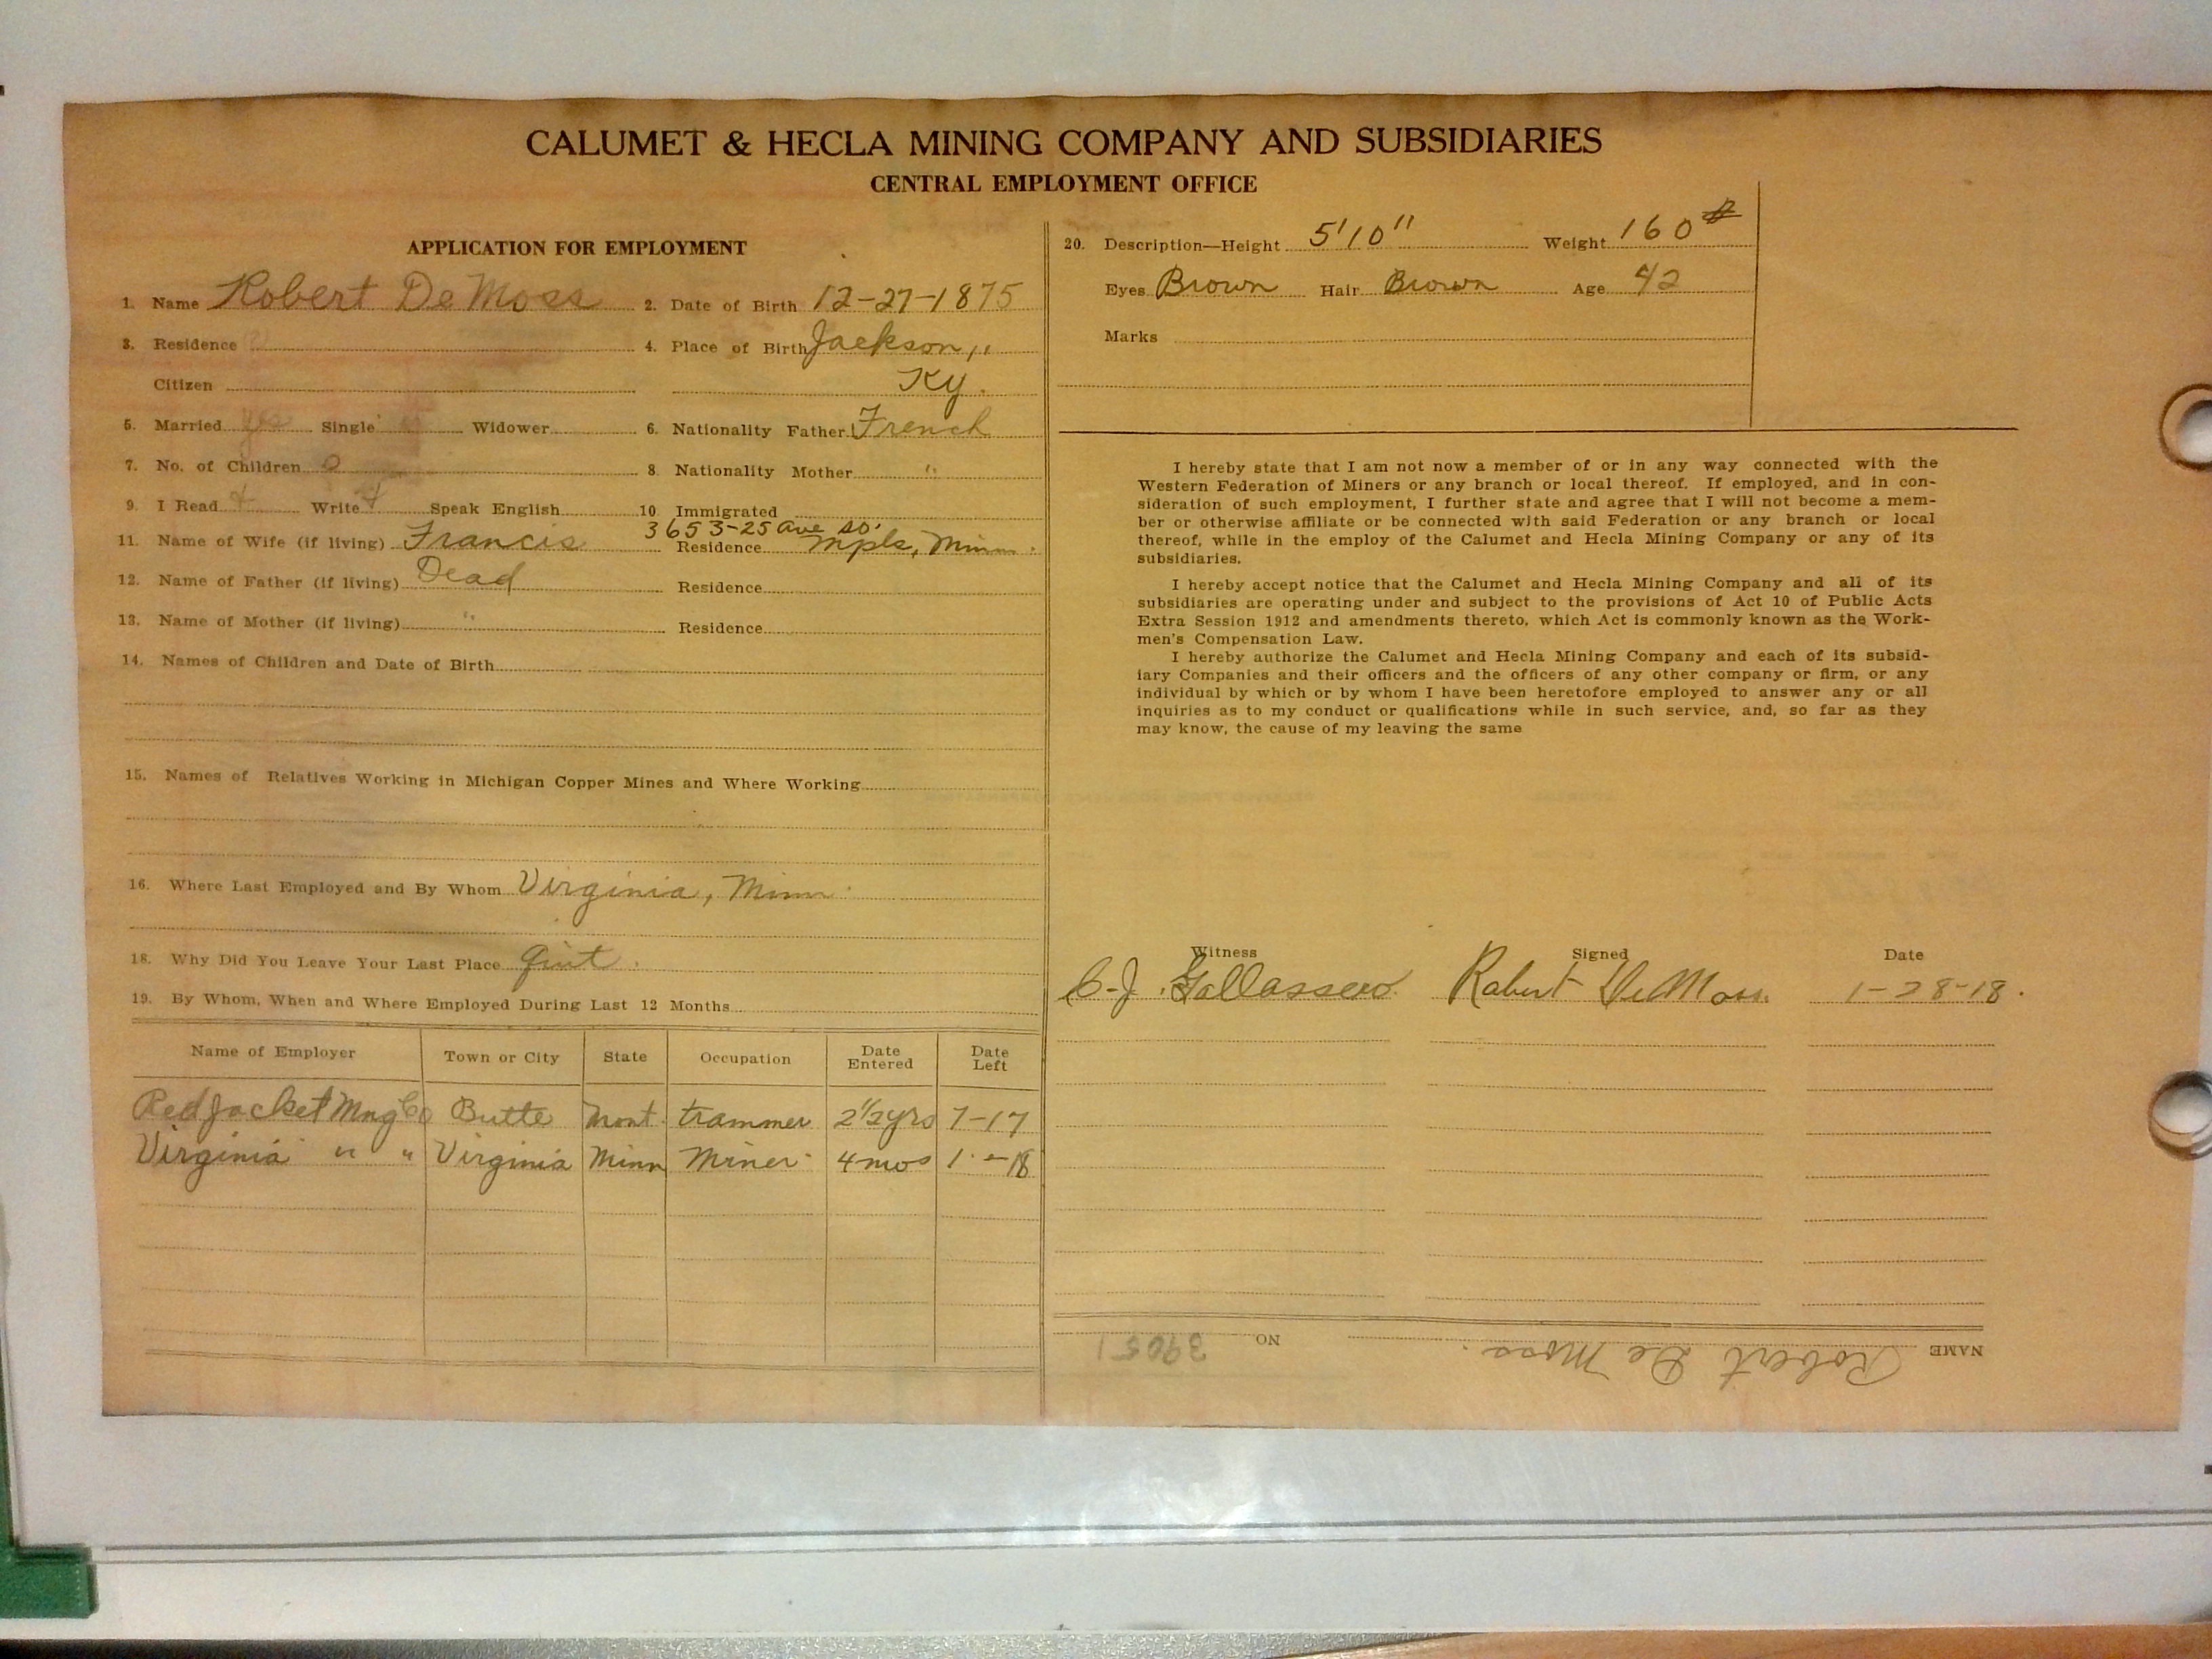 CALUMET & HECLA MINING COMPANY AND SUBSIDIARIES
CENTRAL EMPLOYMENT OFFICE
APPLICATION FOR EMPLOYMENT
1. Name Robert De Moss 2. Date of Birth 12-27-1875
3. Residence 4. Place of Birth Jackson,
Citizen Ky.
5. Married yes Single Widower 6. Nationality Father French
7. No. of Children 0 8. Nationality Mother "
9. I Read + Write + Speak English 10 Immigrated
3653-25 Ave so.
11. Name of Wife (if living) Francis Residence Mpls, Minn.
12. Name of Father (if living) Dead Residence
13. Name of Mother (if living) " Residence
14. Names of Children and Date of Birth
15. Names of Relatives Working in Michigan Copper Mines and Where Working
16. Where Last Employed and By Whom Virginia, Minn.
18. Why Did You Leave Your Last Place Quit.
19. By Whom, When and Where Employed During Last 12 Months
Name of Employer Town or City State Occupation Date Entered Date Left
Red Jacket Mng Co Butte Mont. trammer 2 1/2 yrs 7-17
Virginia " " Virginia Minn Miner 4 mos 1-18
20. Description—Height 5'10" Weight 160#
Eyes Brown Hair Brown Age 42
Marks
I hereby state that I am not now a member of or in any way connected with the
Western Federation of Miners or any branch or local thereof. If employed, and in con-
sideration of such employment, I further state and agree that I will not become a mem-
ber or otherwise affiliate or be connected with said Federation or any branch or local
thereof, while in the employ of the Calumet and Hecla Mining Company or any of its
subsidiaries.
I hereby accept notice that the Calumet and Hecla Mining Company and all of its
subsidiaries are operating under and subject to the provisions of Act 10 of Public Acts
Extra Session 1912 and amendments thereto, which Act is commonly known as the Work-
men's Compensation Law.
I hereby authorize the Calumet and Hecla Mining Company and each of its subsid-
iary Companies and their officers and the officers of any other company or firm, or any
individual by which or by whom I have been heretofore employed to answer any or all
inquiries as to my conduct or qualifications while in such service, and, so far as they
may know, the cause of my leaving the same
Witness Signed Date
C. J. Robert De Moss. 1-28-18.
NAME Robert De Moss. NO 39051